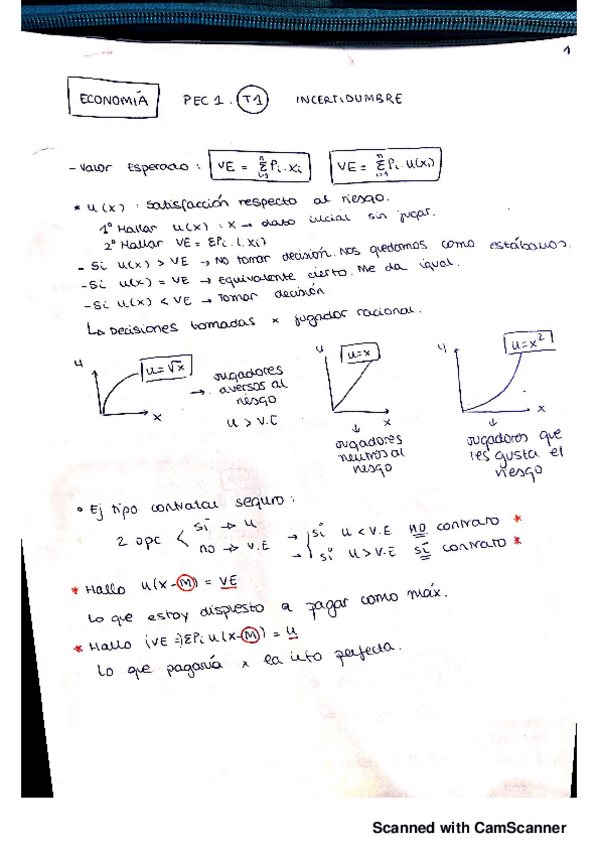 1
ECONOMÍA PEC 1. T1 INCERTIDUMBRE
- Valor Esperado: VE = Σ Pi · xi VE = Σ Pi · u(xi)
* u(x): Satisfacción respecto al riesgo.
1º Hallar u(x): x → dato inicial sin jugar.
2º Hallar VE = ΣPi · (xi)
- Si u(x) > VE → No tomar decisión. Nos quedamos como estábamos.
- Si u(x) = VE → Equivalente cierto. Me da igual.
- Si u(x) < VE → Tomar decisión
↳ Decisiones tomadas x jugador racional.
u u=√x x
→ Jugadores
aversos al
riesgo
u > V.E
u u=x x
↓
Jugadores
neutros al
riesgo
u u=x² x
↓
Jugadores que
les gusta el
riesgo
• Ej tipo contratar seguro:
2 opc < sí → u
no → V.E
→ si u < V.E no contrato *
→ si u > V.E sí contrato *
* Hallo u(x-M) = VE
Lo que estoy dispuesto a pagar como máx.
* Hallo (VE=)ΣPi u(x-M) = u
Lo que pagaría x la info perfecta.
Scanned with CamScanner